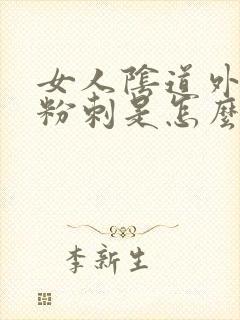 女人陰道外
粉刺是怎麼
李新生